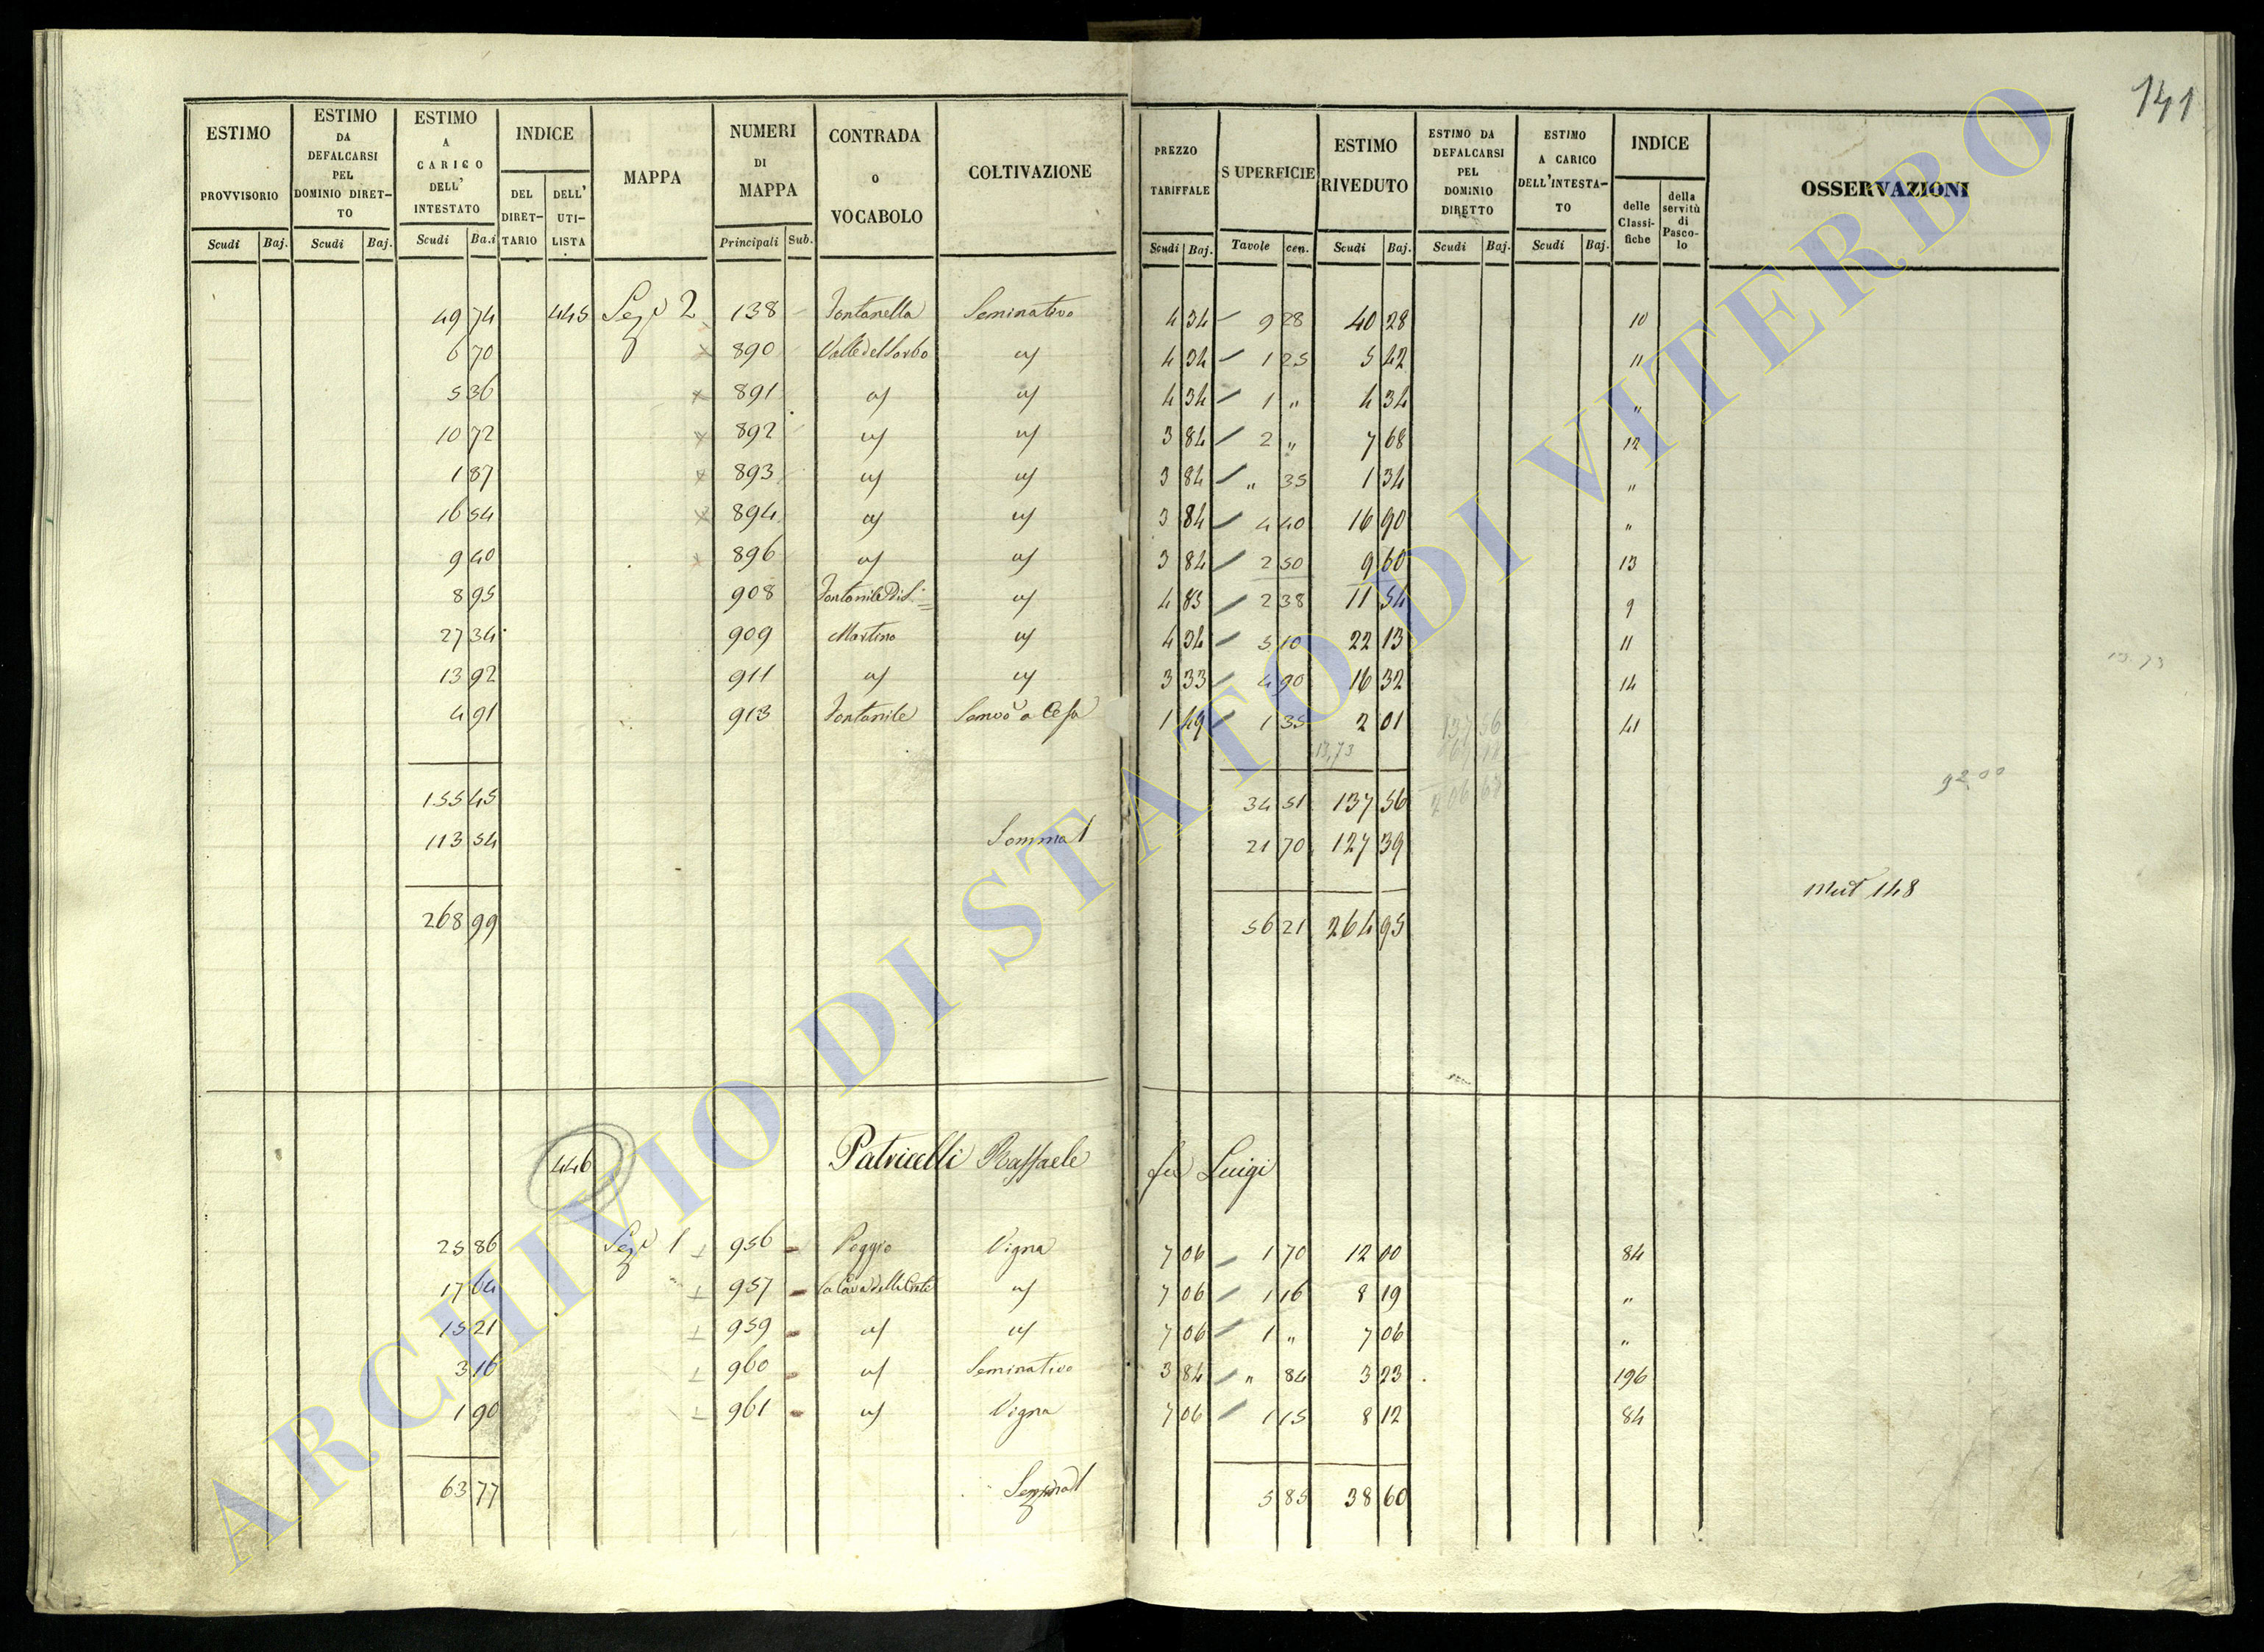 141
ESTIMO PROVVISORIO Scudi Baj.
ESTIMO DA DEFALCARSI PEL DOMINIO DIRETTO Scudi Baj.
ESTIMO A CARICO DELL' INTESTATO Scudi Ba.i
INDICE DEL DIRETTARIO DELL' UTILISTA
MAPPA
NUMERI DI MAPPA Principali Sub.
CONTRADA o VOCABOLO
COLTIVAZIONE
PREZZO TARIFFALE Scudi Baj.
SUPERFICIE Tavole cen.
ESTIMO RIVEDUTO Scudi Baj.
ESTIMO DA DEFALCARSI PEL DOMINIO DIRETTO Scudi Baj.
ESTIMO A CARICO DELL'INTESTATO Scudi Baj.
INDICE delle Classifiche della servitù di Pascolo
OSSERVAZIONI
49 74 445 Sez 2 138 Fontanella Seminativo 4 34 9 28 40 28 10
6 70 890 Valle del Sorbo 4 34 1 25 5 42 11
5 36 891 4 34 1 " 4 34 "
10 72 892 3 84 2 " 7 68 12
1 87 893 3 84 " 35 1 34 "
16 54 894 3 84 4 40 16 90 "
9 40 896 3 84 2 50 9 60 13
8 95 908 4 85 2 38 11 54 9
27 34 909 Martino 4 34 5 10 22 13 11
13 92 911 3 33 4 90 16 32 14
4 91 913 Fontanile 1 49 1 35 2 01 41
13,73
155 45 34 51 137 56
92 00
113 54 Somma 21 70 127 39
Mut 148
268 99 56 21 264 95
446 Patricelli Raffaele fu Luigi
25 86 Sez 1 956 Poggio Vigna 7 06 1 70 12 00 84
17 64 957 7 06 1 16 8 19 "
15 21 959 7 06 1 " 7 06 "
3 16 960 Seminativo 3 84 " 84 3 23 196
1 90 961 Vigna 7 06 1 15 8 12 84
63 77 5 85 38 60
ARCHIVIO DI STATO DI VITERBO